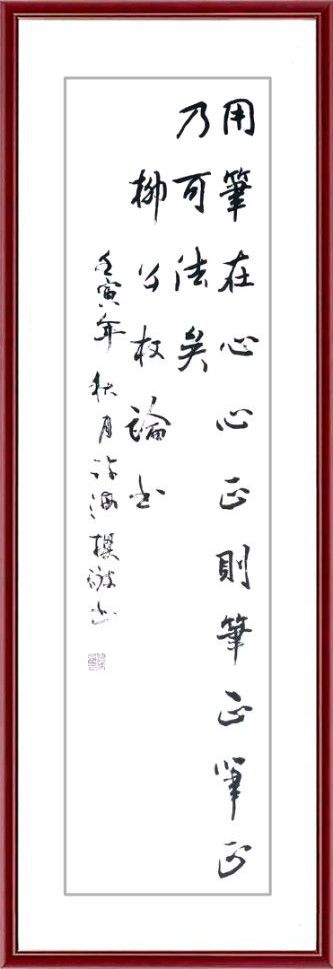 用筆在心心正則筆正筆正
乃可法矣
柳公权論书
壬寅年秋月 海 书